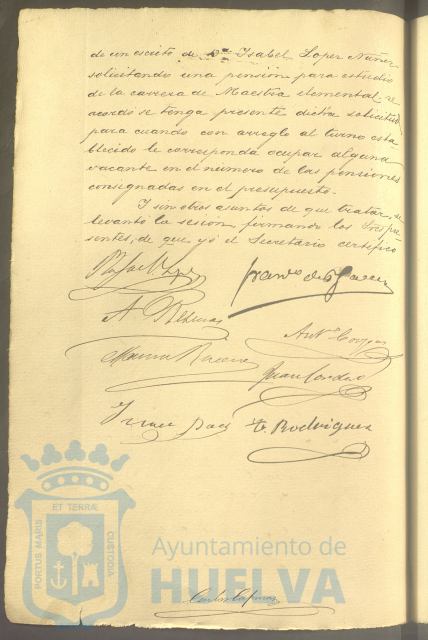 de un escrito de Dª Isabel Lopez Nuñez
solicitando una pensión para estudio
de la carrera de Maestra elemental, se
acordó se tenga presente dicha solicitud
para cuando con arreglo al turno esta
blecido le corresponda ocupar alguna
vacante en el número de las pensiones
consignadas en el presupuesto.
Y sin otros asuntos de que tratar, se
levantó la sesión, firmando los Sres pre
sentes, de que yó el Secretario certifico
Rafael
Franco de
A
Antº
Juan Cordero
T. Rodriguez
PORTUS MARIS
ET TERRÆ
CUSTODIA
Ayuntamiento de
HUELVA